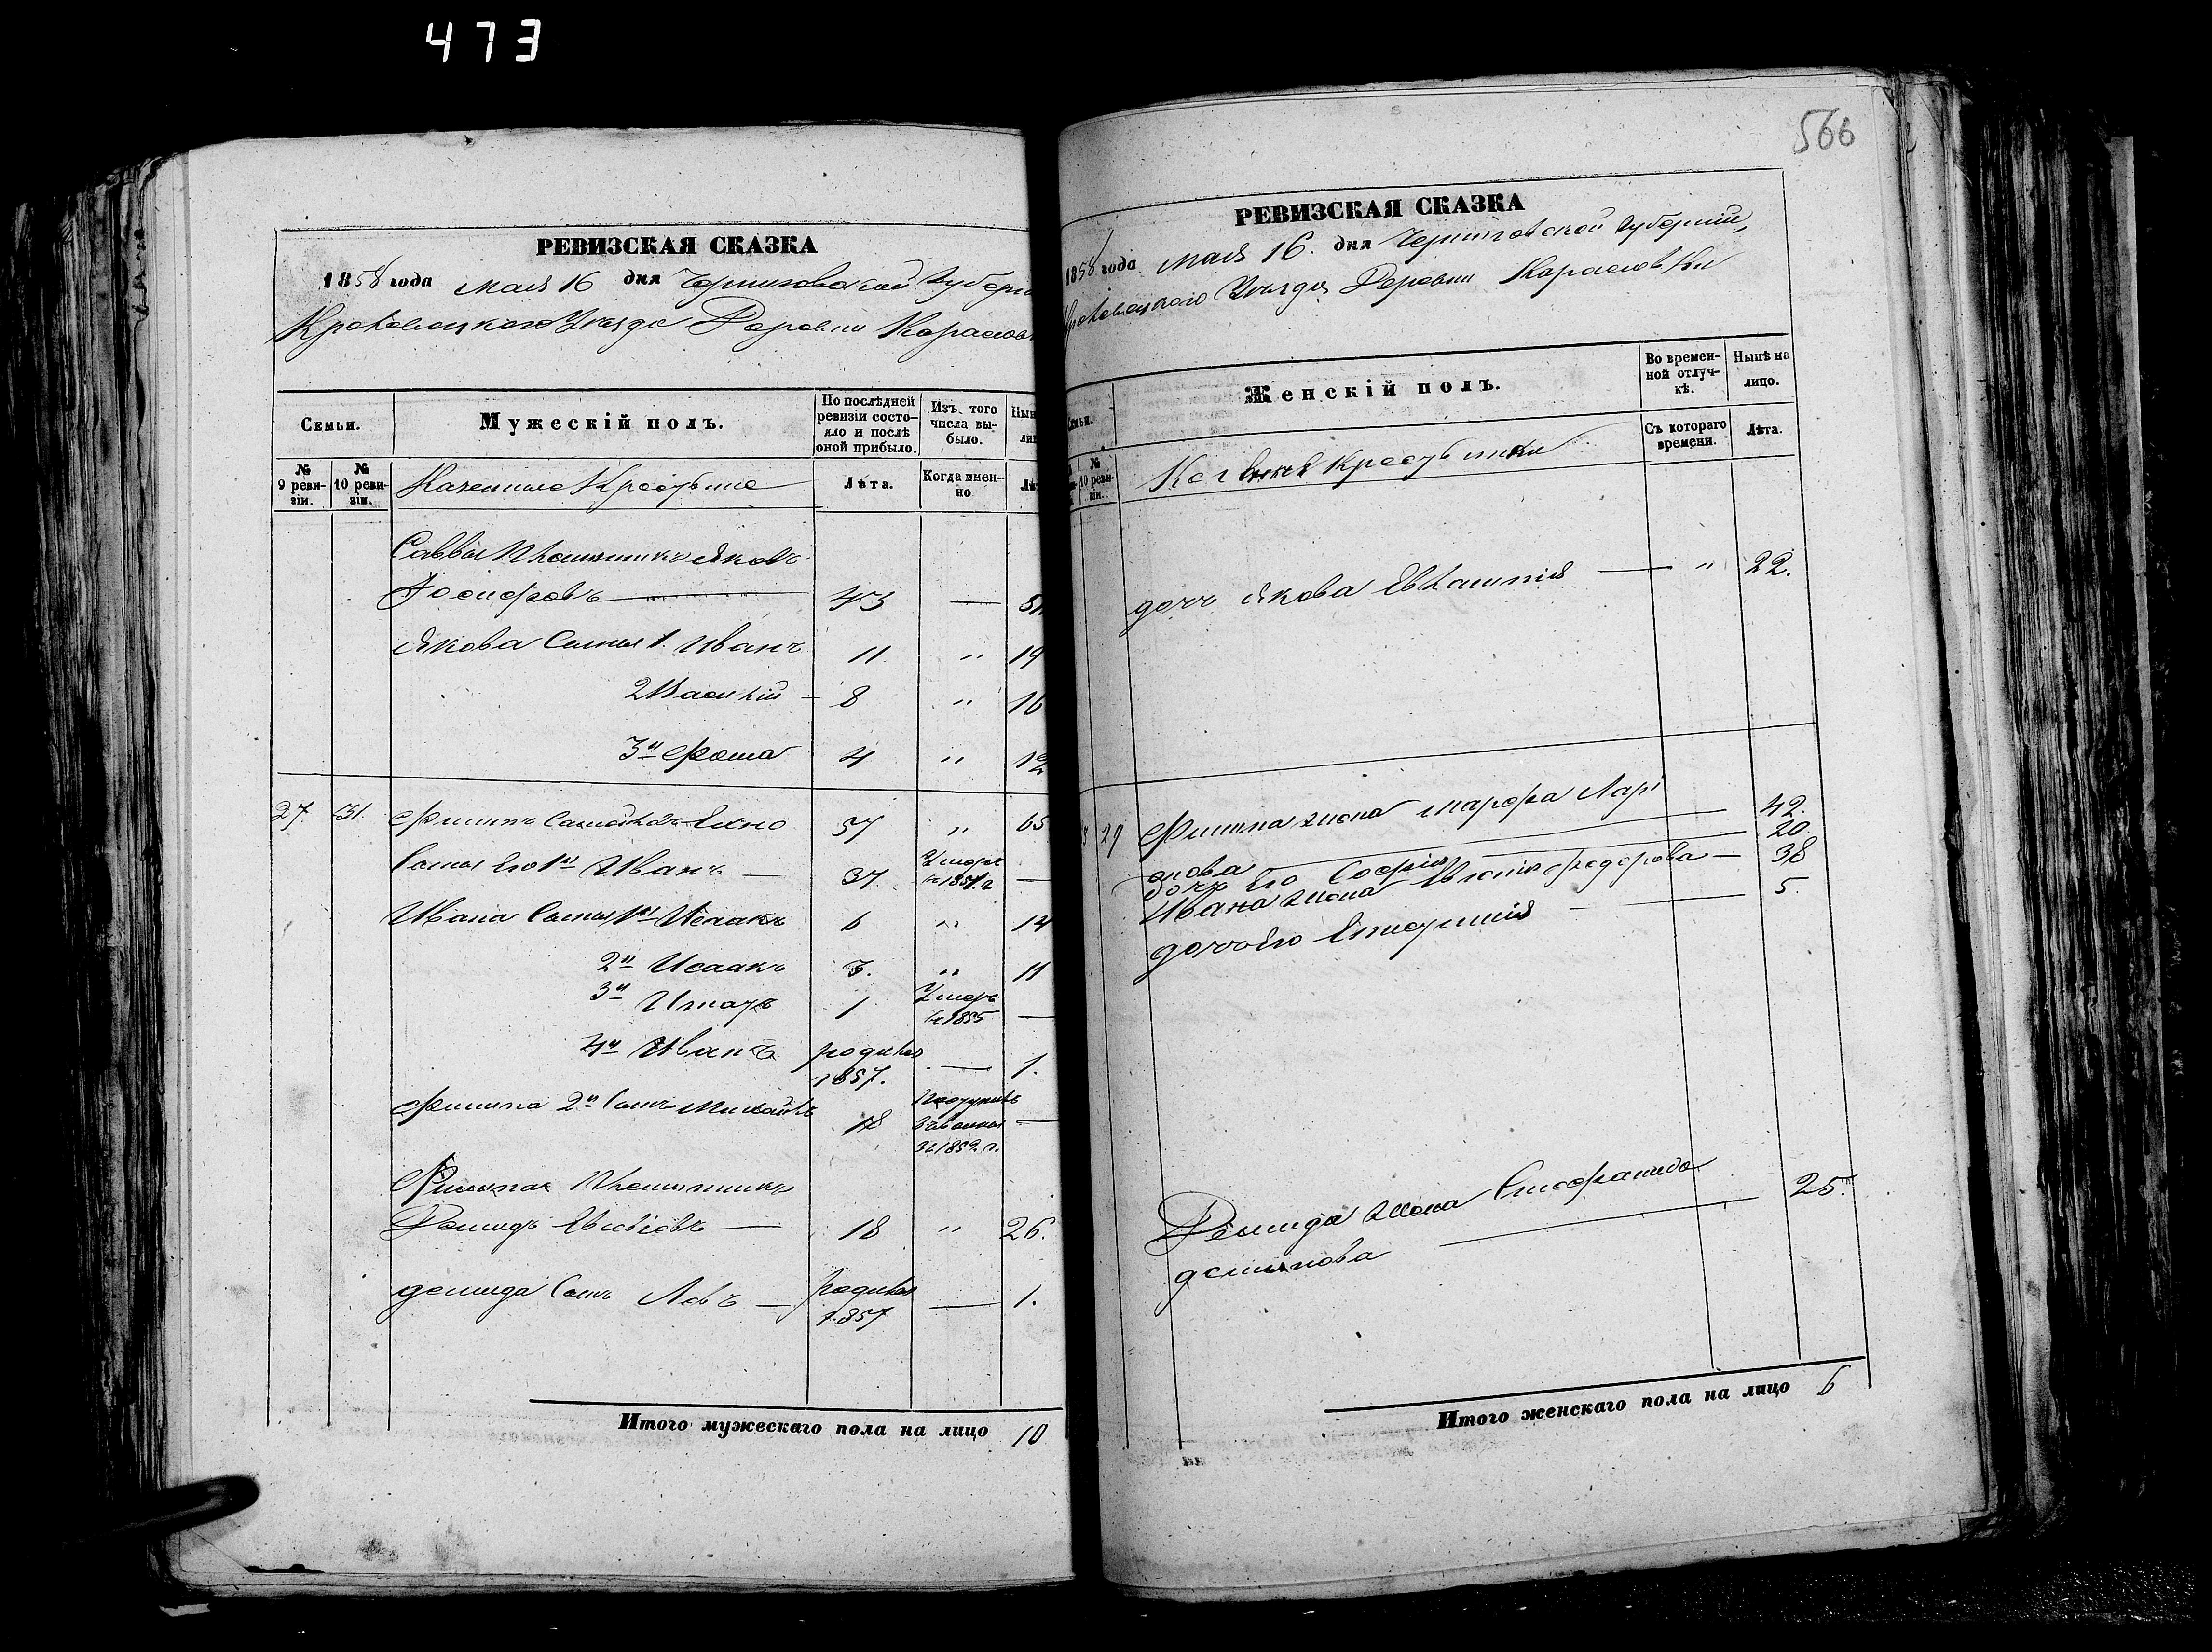 473
РЕВИЗСКАЯ СКАЗКА
1858 года мая 16 дня Черниговской Губерн
Кролевецкого Уезда Деревни Карасовк
Семьи.
Мужескій полъ.
По послѣдней ревизіи состояло и послѣ оной прибыло.
Изъ того числа выбыло.
Нын
ли
№ 9 ревизіи.
№ 10 ревизіи.
Казенные Крестьяне
Лѣта.
Когда именно
Лѣ
Саввы Племянникъ Яковъ
Іосифовъ 43 —
Якова Сыны 1. Иванъ 11 " 19
2 Василій 8 " 16
3й Фома 4 " 12
27 31. Филиппъ 57 " 65
Сыны Его 1й Иванъ — 37. Умеръ —
Ивана Сыны 1й 6 " 14
2й Исаакъ 3. " 11
3й 1 Умеръ 1855 —
4й Иванъ родился 1857. — 1.
Филипа 2й Сынъ Михайла 18 1852 г. —
Филипа Племянникъ
Демидъ — 18 " 26.
демида Сынъ Левъ — родился 1857 — 1.
Итого мужескаго пола на лицо 10
566
РЕВИЗСКАЯ СКАЗКА
1858 года мая 16. дня Черниговской Губернии,
Кролевецкого Уезда Деревни Карасовки
Женскій полъ.
Во временной отлучкѣ.
Нынѣ на лицо.
№ 10 ревизіи.
Крестьянки
Съ котораго времени.
Лѣта.
дочь Якова — " 22.
29 Филипа жена Марфа Лари
онова 42.
дочь Его Софія 20.
Ивана жена Федорова — 38
дочь Его — 5.
Демида жена Степанида
демянова 25.
Итого женскаго пола на лицо 6